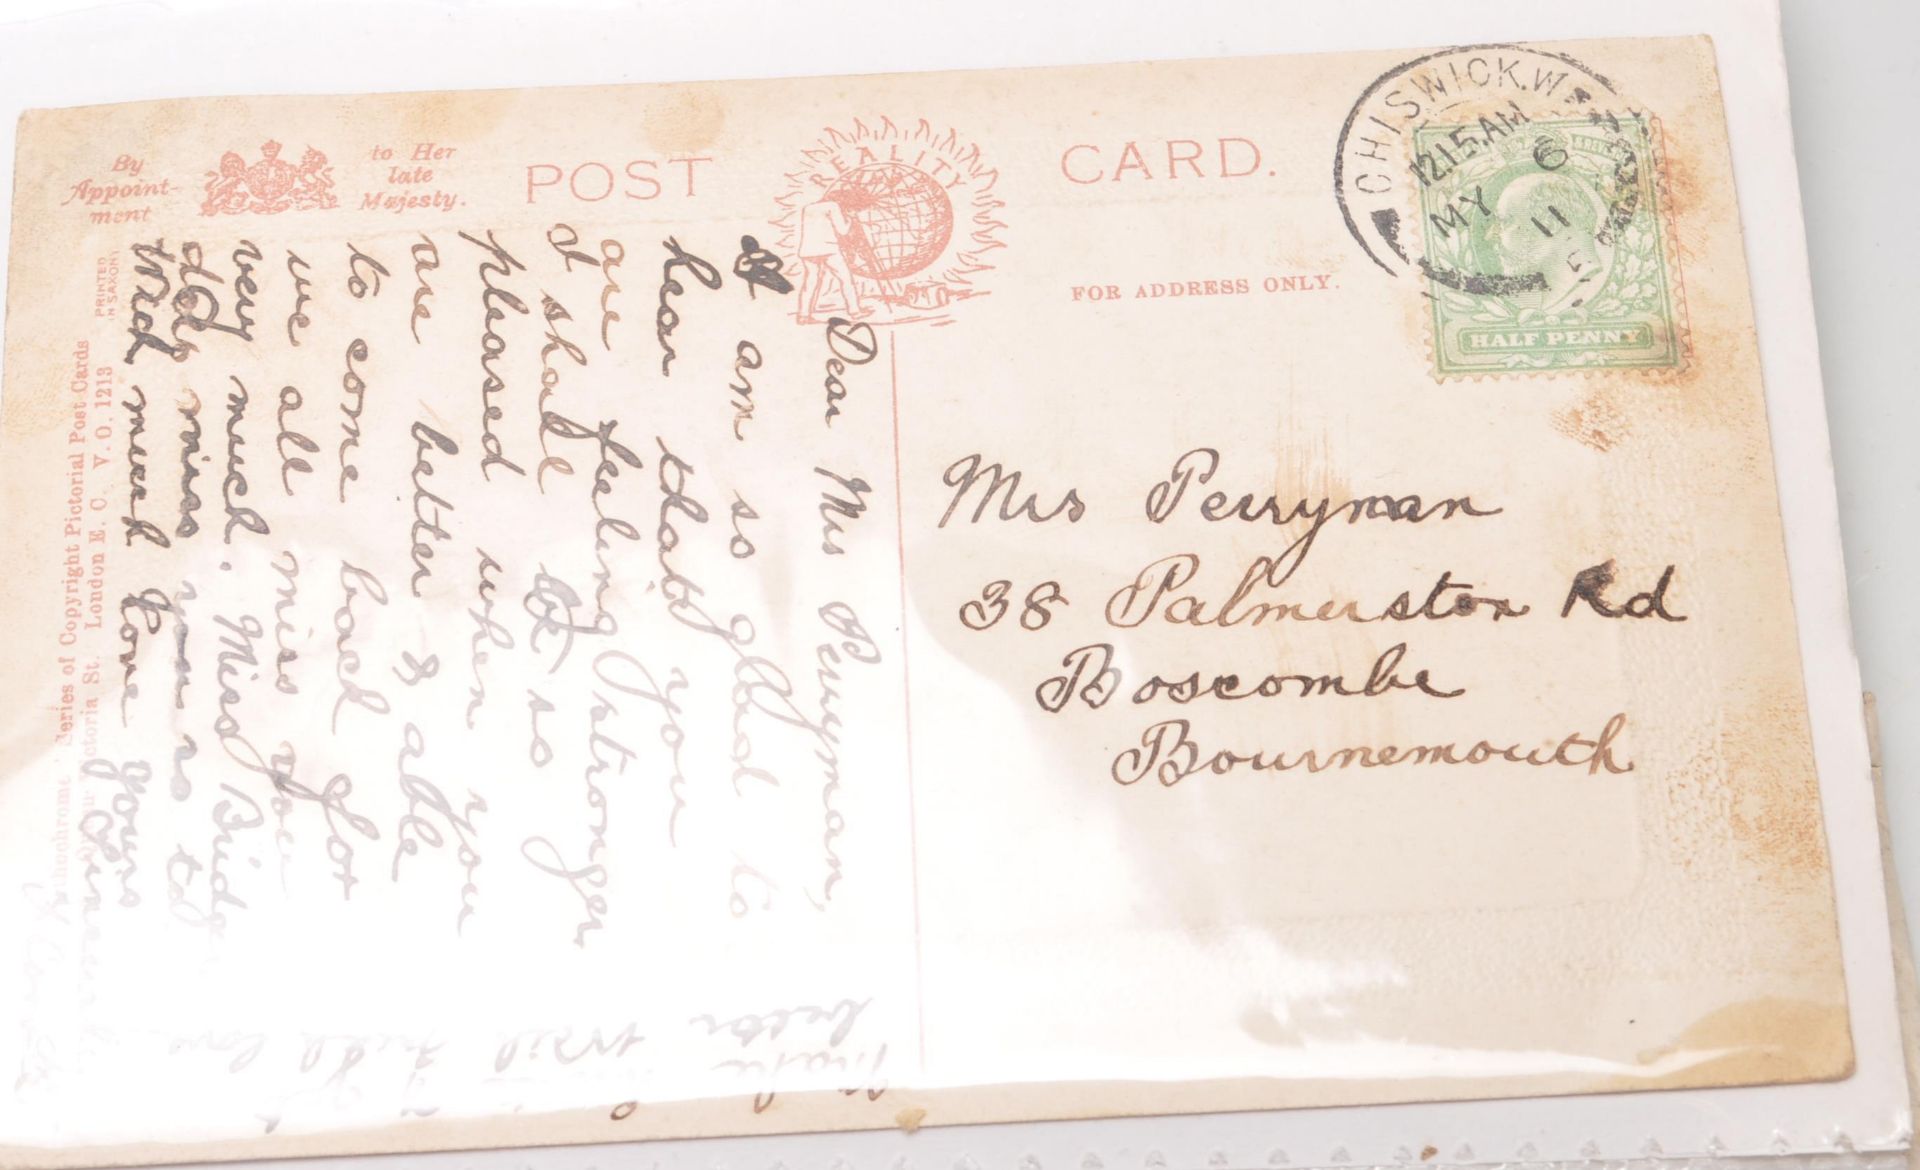 By
Appoint-
ment
to Her
late
Majesty.
POST
CARD.
REALITY
FOR ADDRESS ONLY.
CHISWICK.W
12.15 AM
MY 6
11
HALF PENNY
Mrs Perryman
38 Palmerston Rd
Boscombe
Bournemouth
Dear Mrs Perryman,
I am so glad to
hear that you
are feeling stronger
I shall be so
pleased when you
are better & able
to come back for
we all miss you
very much. Miss
day miss you so
With much Love yours
Series of Copyright Pictorial Post Cards
St. London E. C. V. O. 1213
PRINTED
IN SAXONY